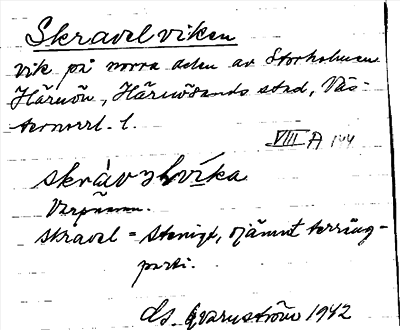 Skravelviken
vik på norra delen av Storholmen
Härnön, Härnösands stad, Väs-
ternorrl. l.
VIII A 144
skrávəlvíka
skravel = stenigt, ojämnt terräng-
parti.
Qvarnström 1942